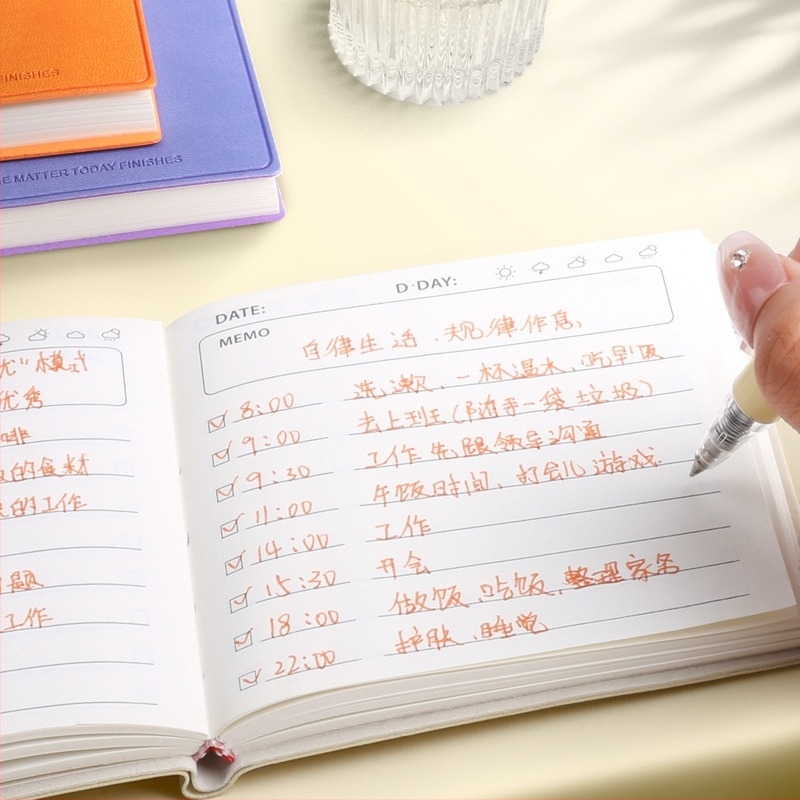 FINISHES
E MATTER TODAY FINISHES
优"模式
优秀
啡
的食材
的工作
题
工作
DATE: D·DAY:
MEMO
自律生活、规律作息、
8:00 洗漱、一杯温水、吃早饭
9:00 去上班(随手一袋垃圾)
9:30 工作先跟领导沟通
11:00 午饭时间、打会儿游戏
14:00 工作
15:30 开会
18:00 做饭、吃饭、整理家务
22:00 护肤、睡觉